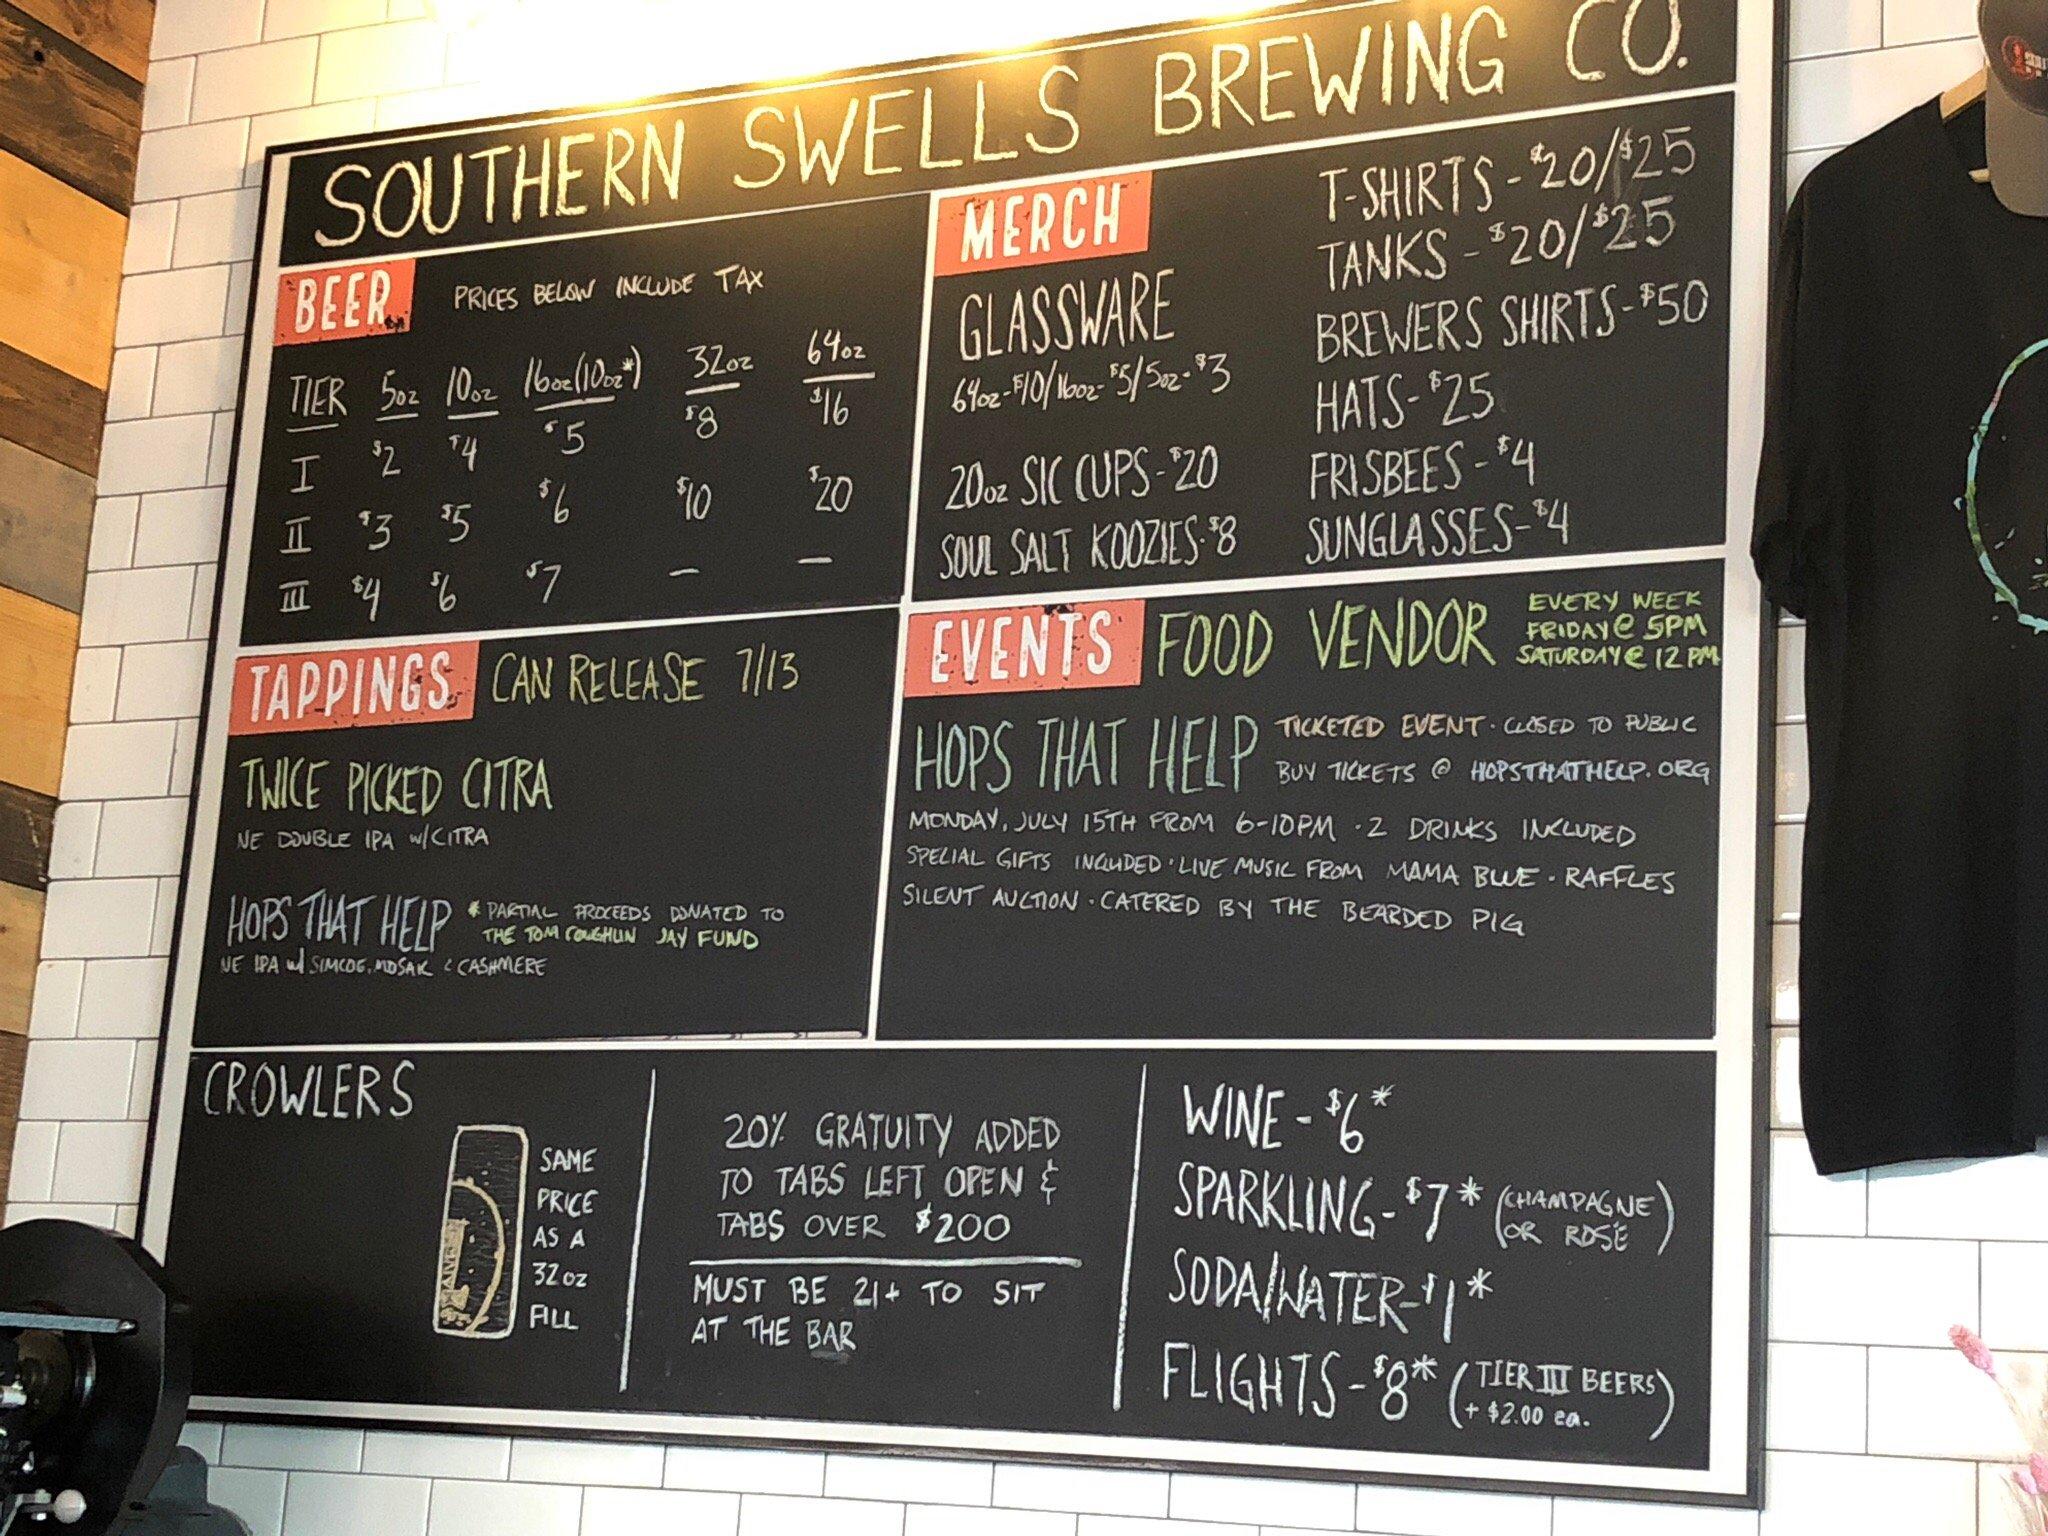 SOUTHERN SWELLS BREWING CO.
BEER PRICES BELOW INCLUDE TAX
TIER 5oz 10oz 16oz(10oz*) 32oz 64oz
I $2 $4 $5 $8 $16
II $3 $5 $6 $10 $20
III $4 $6 $7 — —
MERCH
GLASSWARE
64oz-$10/16oz-$5/5oz-$3
20oz SIC CUPS-$20
SOUL SALT KOOZIES-$8
T-SHIRTS-$20/$25
TANKS-$20/$25
BREWERS SHIRTS-$50
HATS-$25
FRISBEES-$4
SUNGLASSES-$4
TAPPINGS CAN RELEASE 7/13
TWICE PICKED CITRA
NE DOUBLE IPA w/CITRA
HOPS THAT HELP * PARTIAL PROCEEDS DONATED TO
THE TOM COUGHLIN JAY FUND
NE IPA w/ SIMCOE, MOSAIC & CASHMERE
EVENTS FOOD VENDOR EVERY WEEK
FRIDAY @ 5PM
SATURDAY @ 12PM
HOPS THAT HELP TICKETED EVENT · CLOSED TO PUBLIC
BUY TICKETS @ HOPSTHATHELP.ORG
MONDAY, JULY 15TH FROM 6-10PM · 2 DRINKS INCLUDED
SPECIAL GIFTS INCLUDED · LIVE MUSIC FROM MAMA BLUE · RAFFLES
SILENT AUCTION · CATERED BY THE BEARDED PIG
CROWLERS
SAME
PRICE
AS A
32oz
FILL
20% GRATUITY ADDED
TO TABS LEFT OPEN &
TABS OVER $200
MUST BE 21+ TO SIT
AT THE BAR
WINE-$6*
SPARKLING-$7* (CHAMPAGNE
OR ROSÉ)
SODA/WATER-$1*
FLIGHTS-$8* (TIER III BEERS
+ $2.00 ea.)